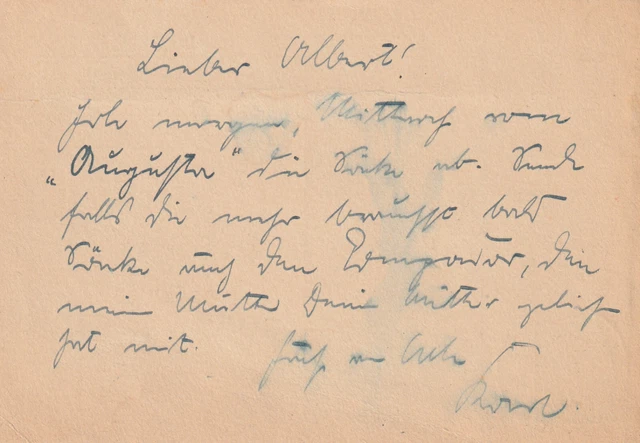 Lieber Albert!
Hole morgen, Mittwoch vom
„Augusta“ die Säcke ab. Sende
falls Du mehr brauchst bald
Säcke und den Pompadour, den
meine Mutter Deiner Mutter geliehen
hat mit. Gruß an Alle
Karl.